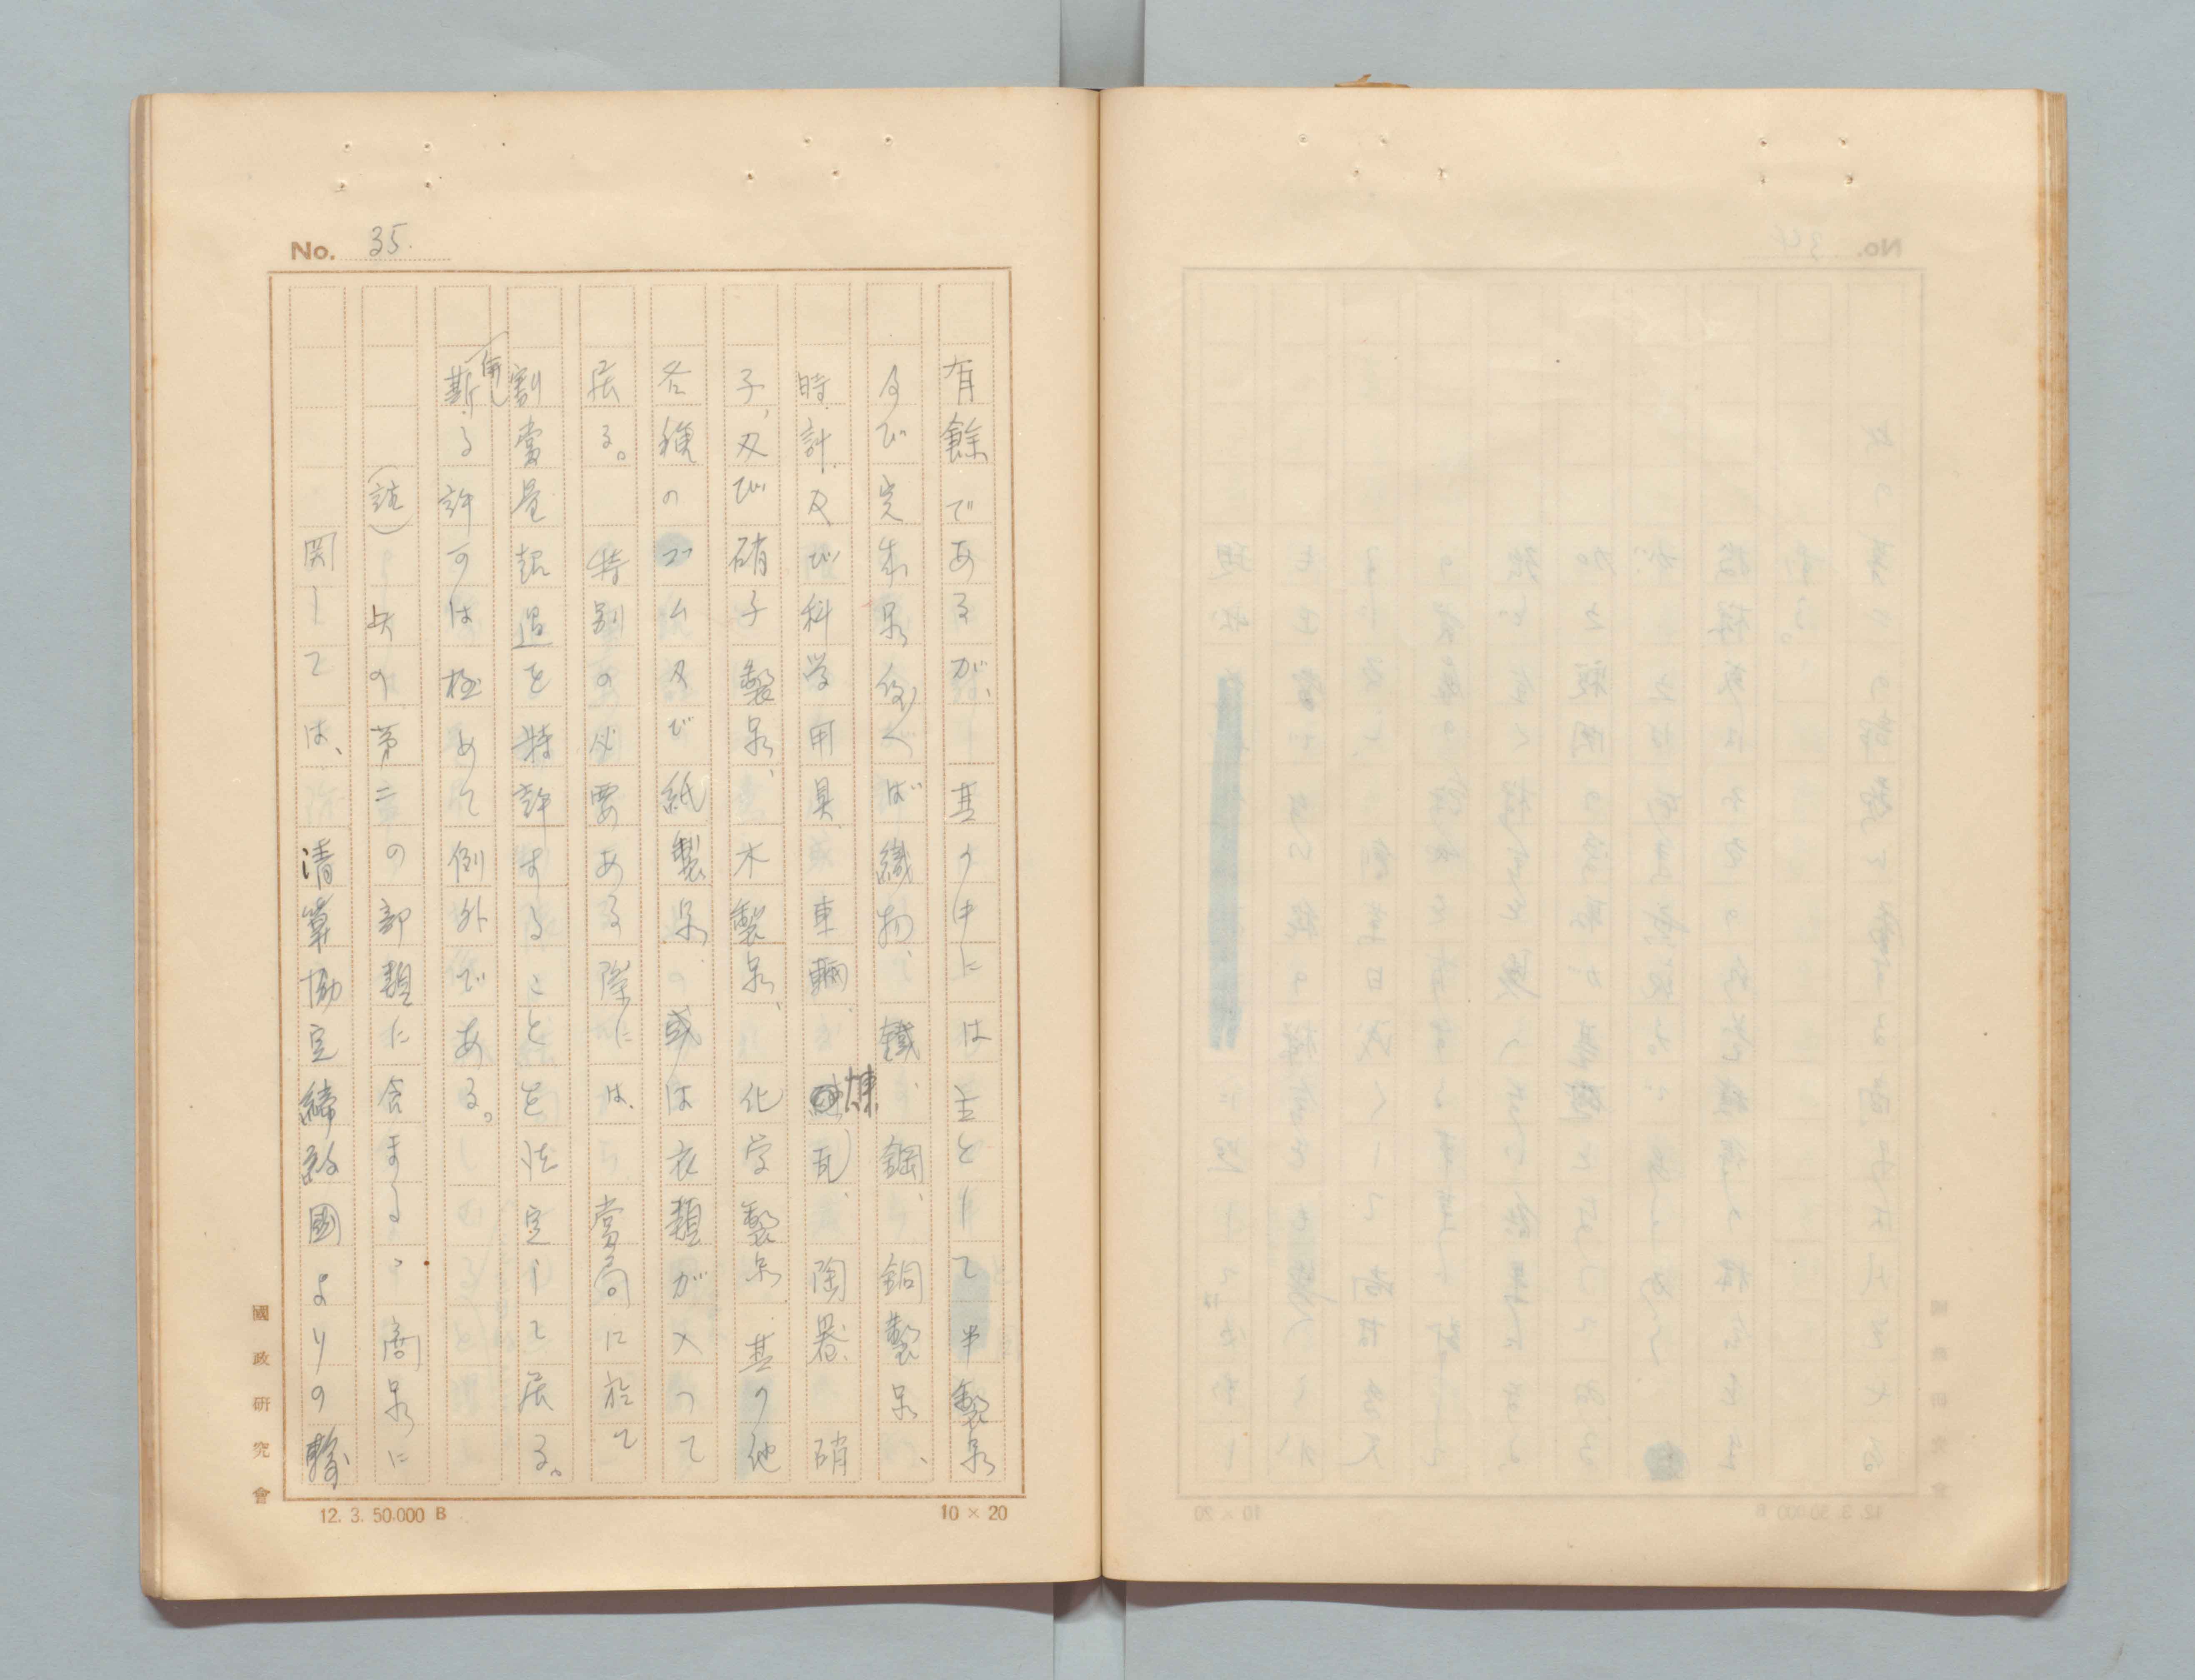 No. 35.
有餘であるが、其の中には主として半製品
及び完成品例へば織物、鐵、鋼、銅製品、
時計及び科学用具、車輛、煉瓦、陶器、硝
子、及び硝子製品、木製品、化学製品其の他
各種のゴム及び紙製品、或は衣類が入つて
居る。特別の必要ある際には、當局に於て
割當量超過を特許することを法定して居る。
但し斯る許可は極めて例外である。
(註)此の第二の部類に含まるゝ商品に
関しては、清算協定締約國よりの輸
國政研究會
12. 3. 50.000 B
10 × 20